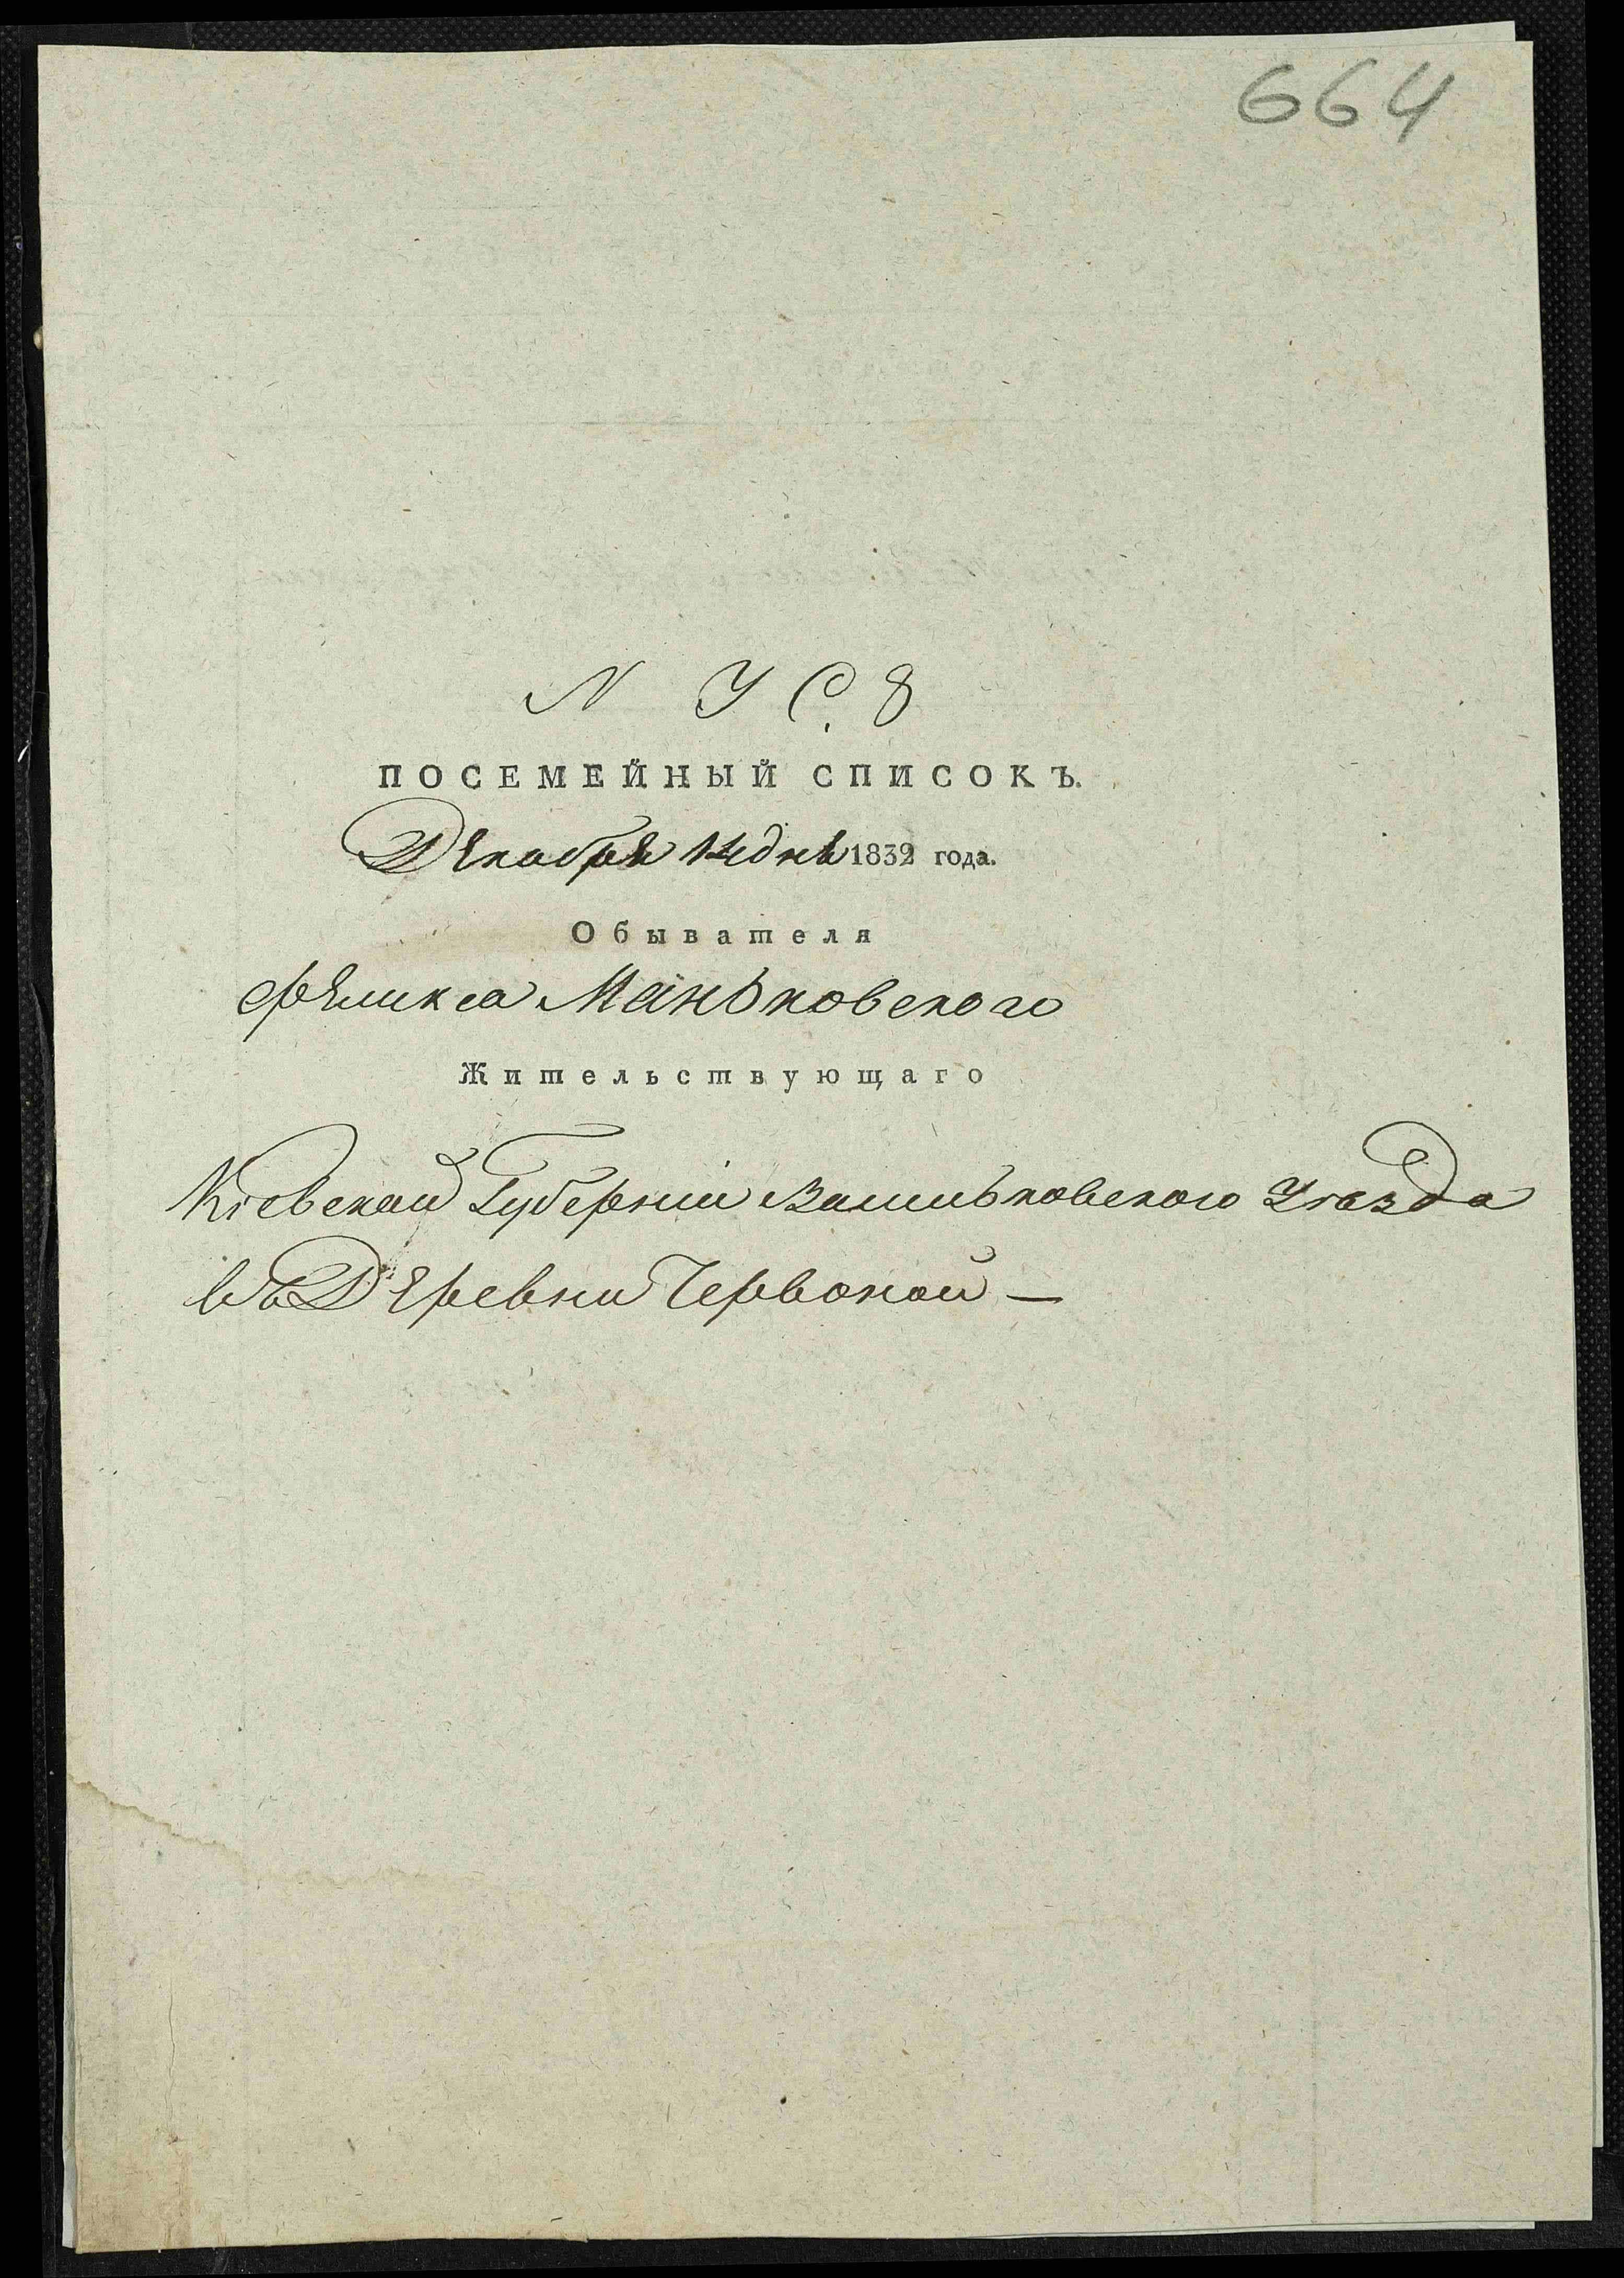 664
N
ПОСЕМЕЙНЫЙ СПИСОКЪ.
Декабря дня 1832 года.
Обывателя
Феликса Маньковского
Жительствующаго
Кіевской Губерніи Васильковского Уезда
въ Деревни Червоной —